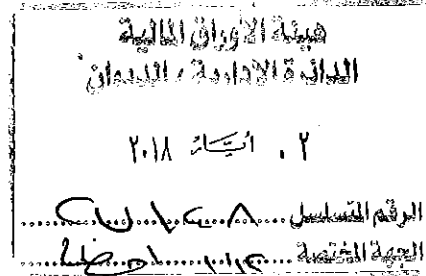 هيئة الأوراق المالية
الدائرة الإدارية / الديوان
٠٢ أيار ٢٠١٨
الرقم المتسلسل
الجهة المختصة